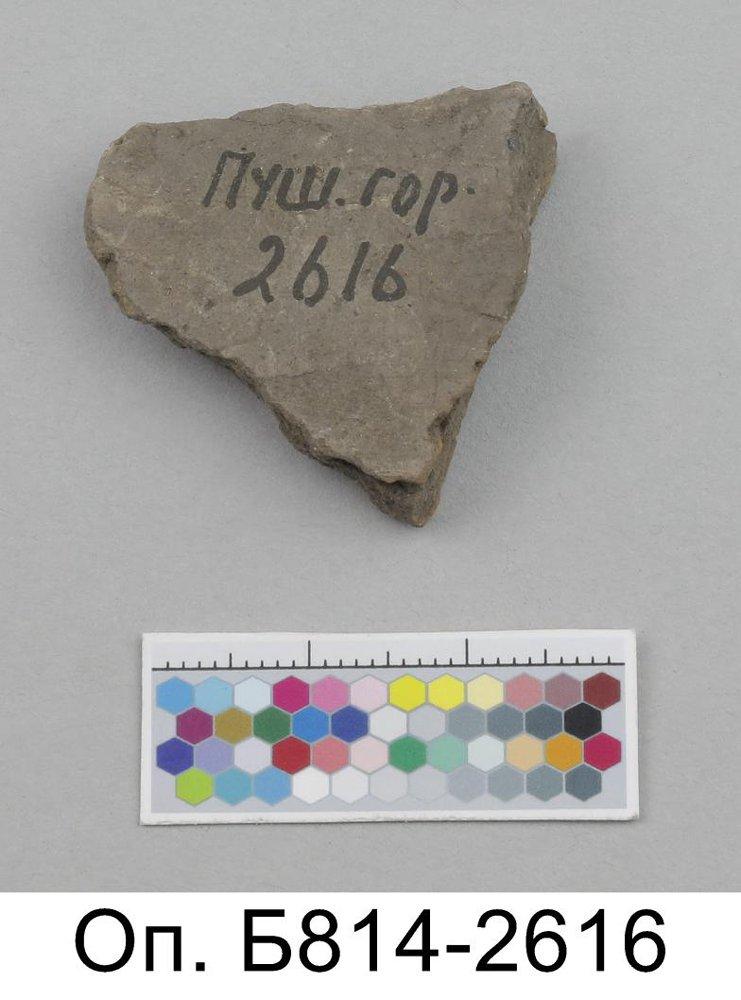 Пуш. гор.
2616
Оп. Б814-2616